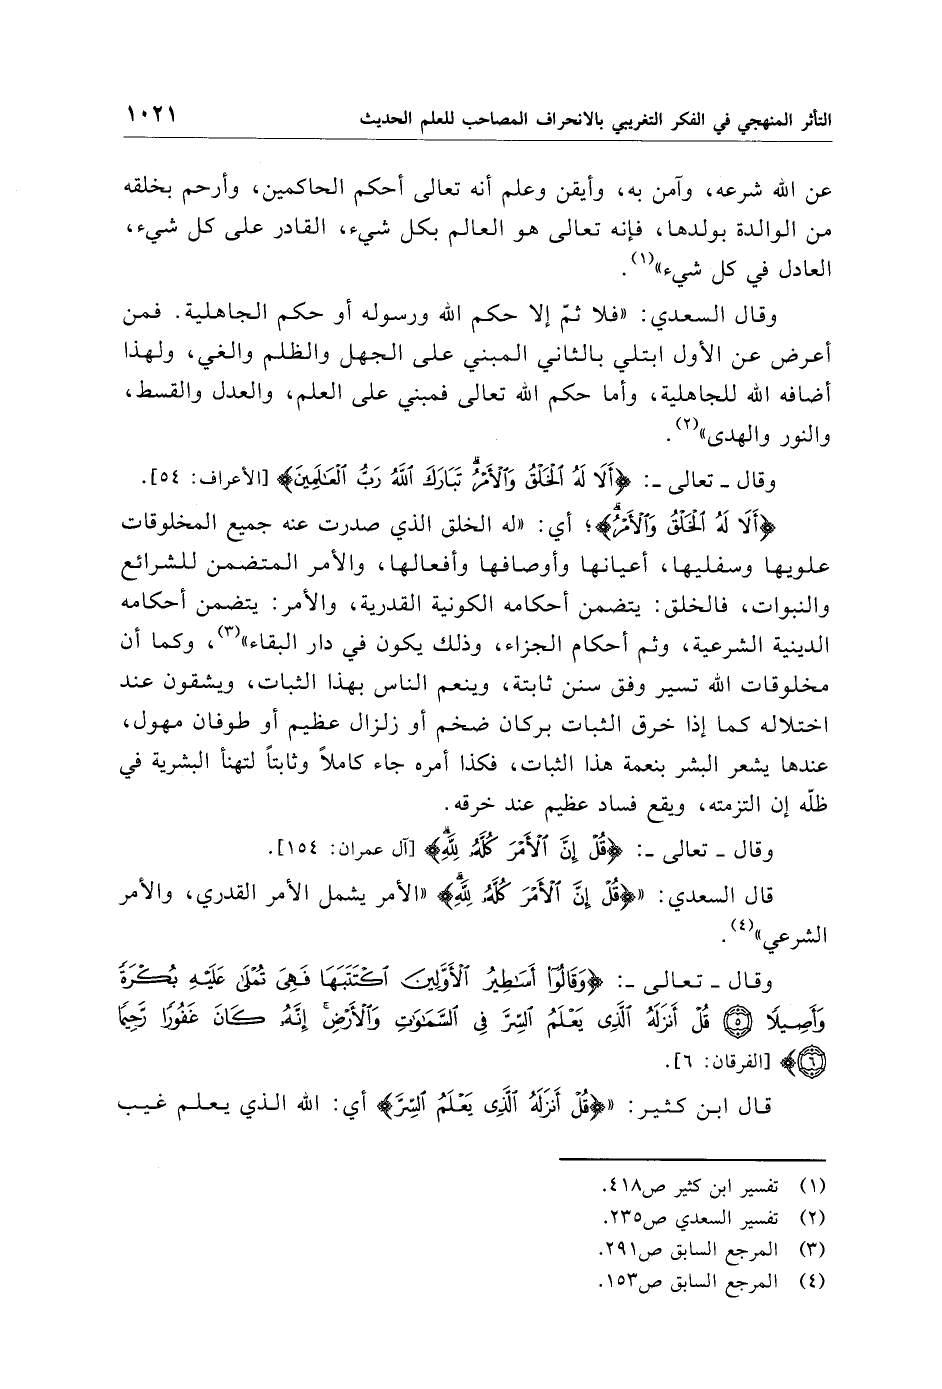 التأثر المنهجي في الفكر التغريبي بالانحراف المصاحب للعلم الحديث ١٠٢١
عن الله شرعه، وآمن به، وأيقن وعلم أنه تعالى أحكم الحاكمين، وأرحم بخلقه
من الوالدة بولدها، فإنه تعالى هو العالم بكل شيء، القادر على كل شيء،
العادل في كل شيء»(١).
وقال السعدي: «فلا ثمّ إلا حكم الله ورسوله أو حكم الجاهلية. فمن
أعرض عن الأول ابتلي بالثاني المبني على الجهل والظلم والغي، ولهذا
أضافه الله للجاهلية، وأما حكم الله تعالى فمبني على العلم، والعدل والقسط،
والنور والهدى»(٢).
وقال ـ تعالى ـ: ﴿أَلَا لَهُ ٱلْخَلْقُ وَٱلْأَمْرُۗ تَبَارَكَ ٱللَّهُ رَبُّ ٱلْعَٰلَمِينَ﴾ [الأعراف: ٥٤].
﴿أَلَا لَهُ ٱلْخَلْقُ وَٱلْأَمْرُۗ﴾؛ أي: «له الخلق الذي صدرت عنه جميع المخلوقات
علويها وسفليها، أعيانها وأوصافها وأفعالها، والأمر المتضمن للشرائع
والنبوات، فالخلق: يتضمن أحكامه الكونية القدرية، والأمر: يتضمن أحكامه
الدينية الشرعية، وثم أحكام الجزاء، وذلك يكون في دار البقاء»(٣)، وكما أن
مخلوقات الله تسير وفق سنن ثابتة، وينعم الناس بهذا الثبات، ويشقون عند
اختلاله كما إذا خرق الثبات بركان ضخم أو زلزال عظيم أو طوفان مهول،
عندها يشعر البشر بنعمة هذا الثبات، فكذا أمره جاء كاملاً وثابتاً لتهنأ البشرية في
ظلّه إن التزمته، ويقع فساد عظيم عند خرقه.
وقال ـ تعالى ـ: ﴿قُلْ إِنَّ ٱلْأَمْرَ كُلَّهُۥ لِلَّهِۗ﴾ [آل عمران: ١٥٤].
قال السعدي: «﴿قُلْ إِنَّ ٱلْأَمْرَ كُلَّهُۥ لِلَّهِۗ﴾ «الأمر يشمل الأمر القدري، والأمر
الشرعي»(٤).
وقال ـ تعالى ـ: ﴿وَقَالُوٓا۟ أَسَٰطِيرُ ٱلْأَوَّلِينَ ٱكْتَتَبَهَا فَهِىَ تُمْلَىٰ عَلَيْهِ بُكْرَةً
وَأَصِيلًا ۝٥ قُلْ أَنزَلَهُ ٱلَّذِى يَعْلَمُ ٱلسِّرَّ فِى ٱلسَّمَٰوَٰتِ وَٱلْأَرْضِۚ إِنَّهُۥ كَانَ غَفُورًا رَّحِيمًا
۝٦﴾ [الفرقان: ٦].
قال ابن كثير: «﴿قُلْ أَنزَلَهُ ٱلَّذِى يَعْلَمُ ٱلسِّرَّ﴾ أي: الله الذي يعلم غيب
(١) تفسير ابن كثير ص٤١٨.
(٢) تفسير السعدي ص٢٣٥.
(٣) المرجع السابق ص٢٩١.
(٤) المرجع السابق ص١٥٣.